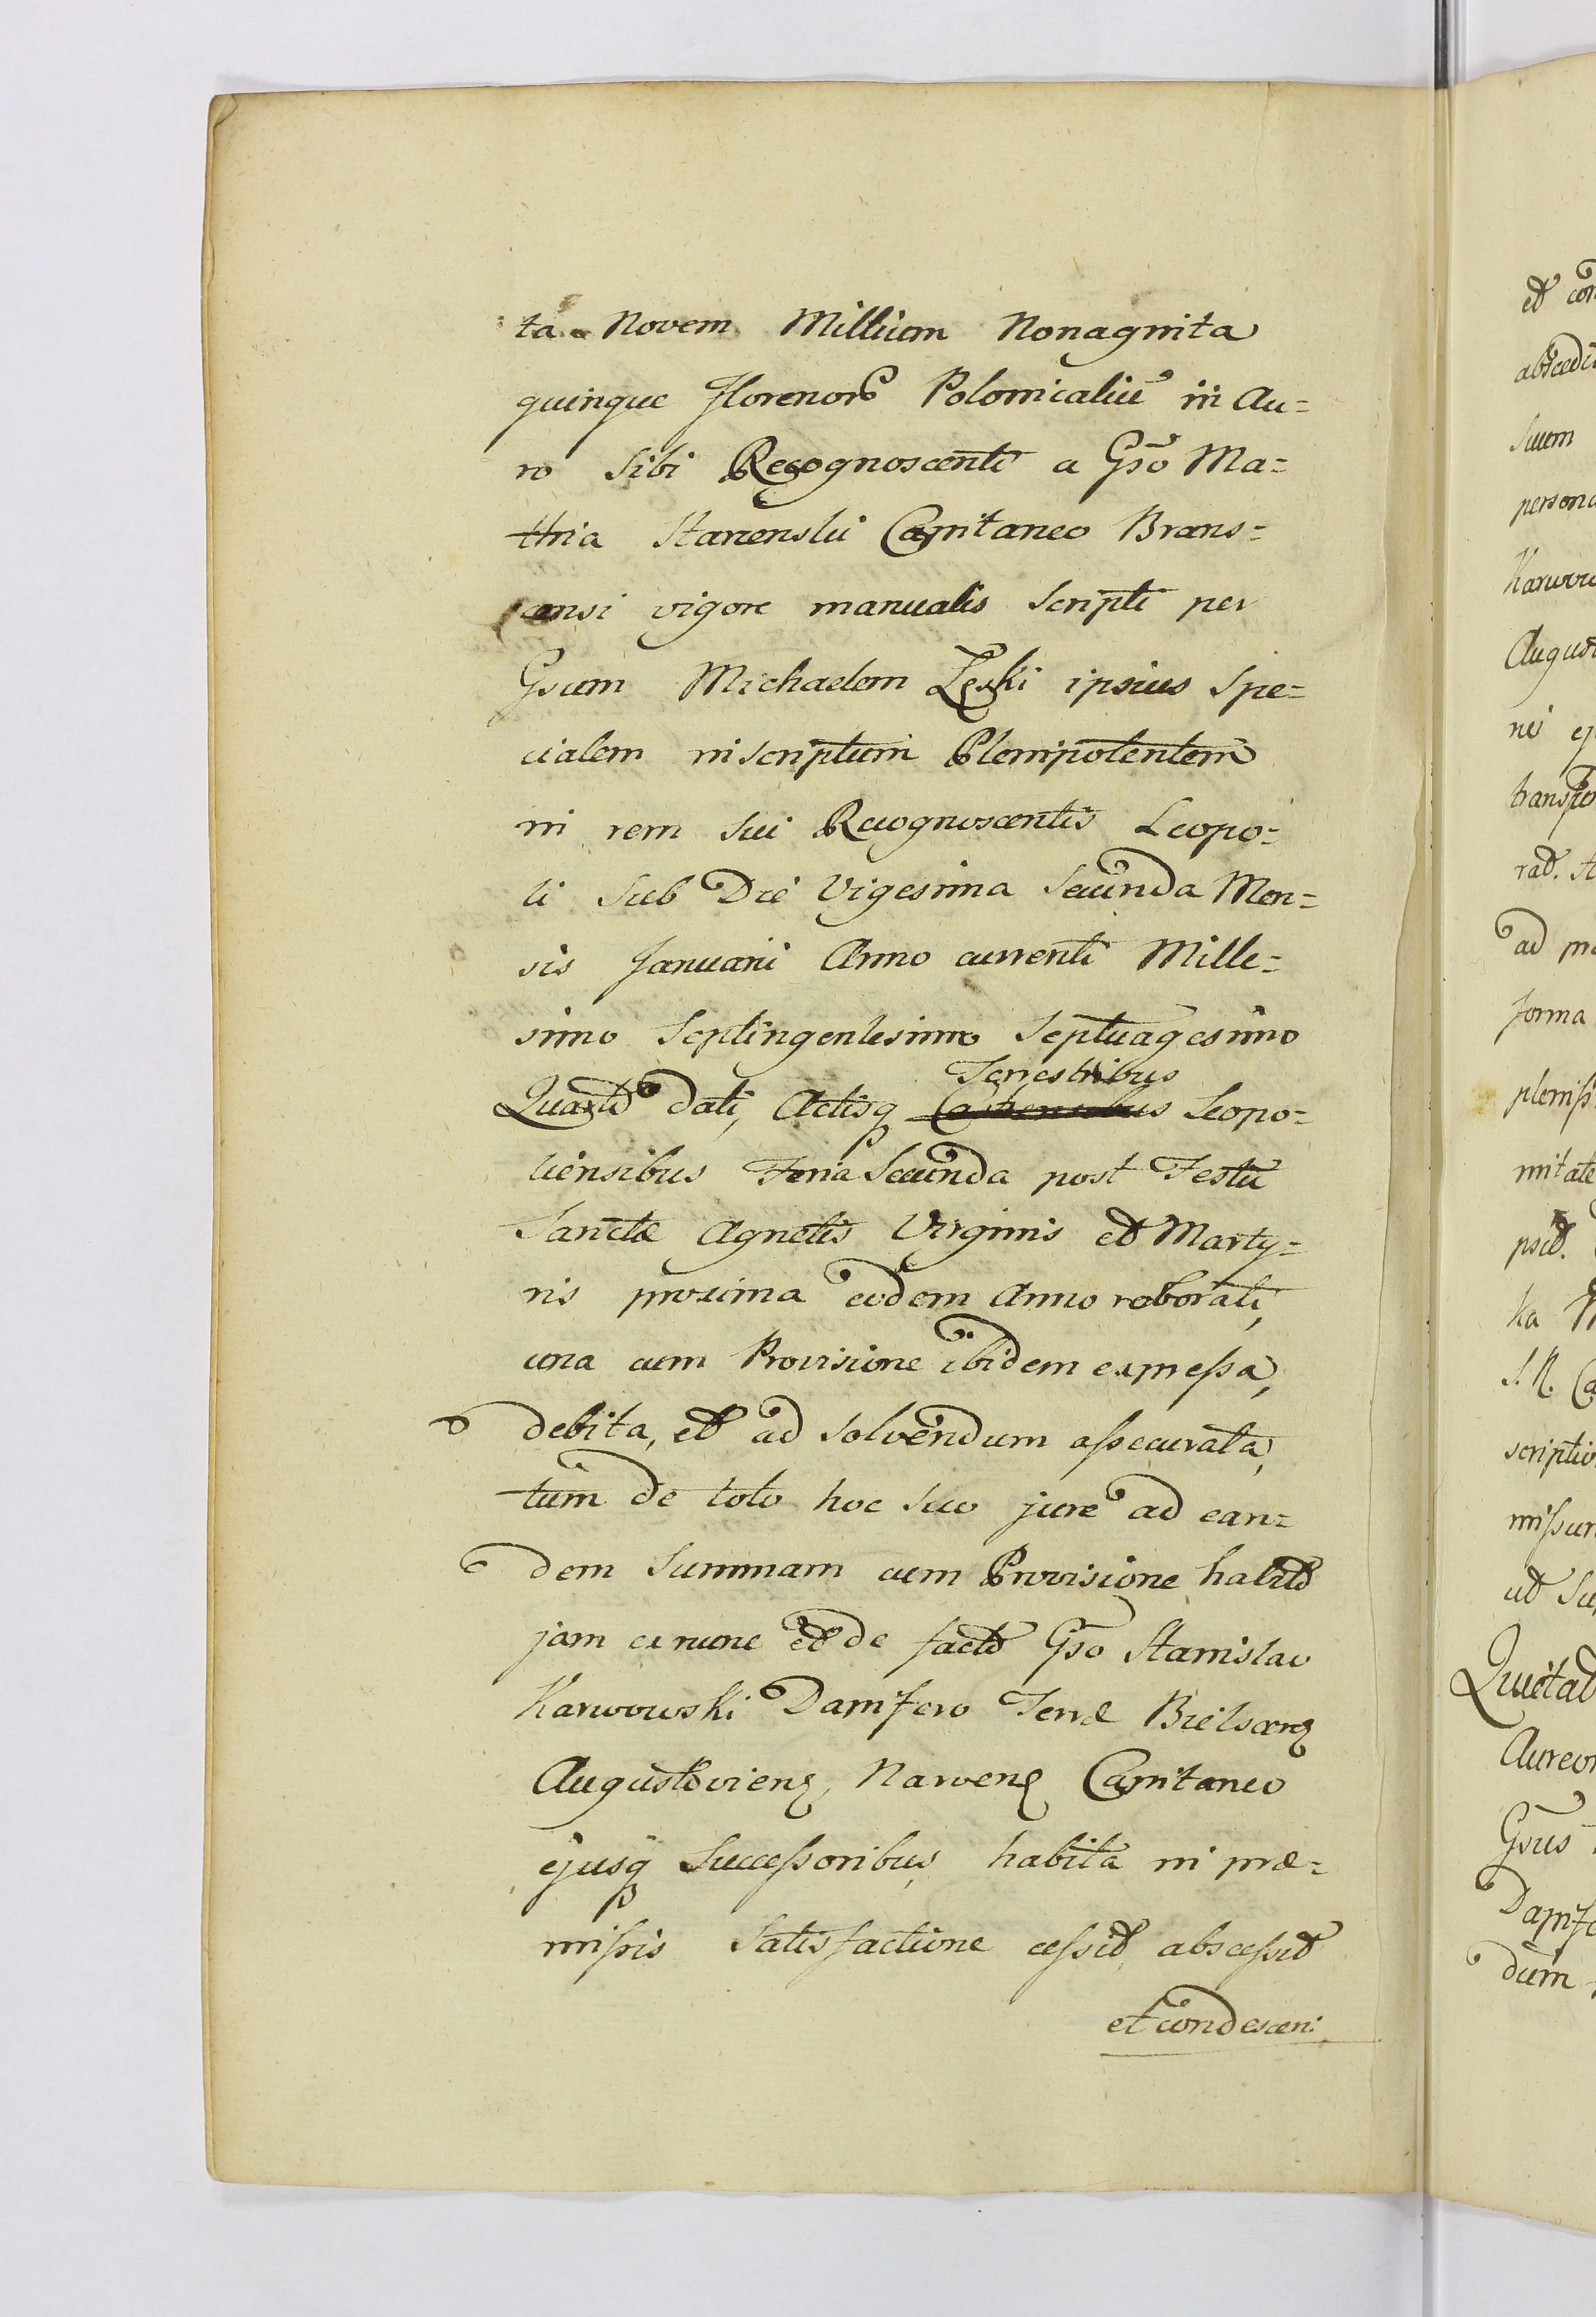 ta Novem Millium Nonaginta
quinque Florenor Polonicaliū in Au=
ro sibi Recognoscenti a Gso Ma=
thia Starzenski Capitaneo Brans=
censi vigore manualis scripti per
Gsum Michaelem Leski ipsius Spe=
cialem inscriptum Plenipotentem
in rem sui Recognoscentis Leopo=
li Sub Die Vigesima Secunda Men=
sis Januarii Anno currenti Mille=
simo Septingentesimo Septuagesimo
Terrestribus
Quarto dati, Actisq Castrensibus Leopo=
liensibus Feria Secunda post Festū
Sanctæ Agnetis Virginis et Marty=
ris proxima eodem Anno roborati,
una cum Provisione ibidem expressa,
debita, et ad solvendum assecurata,
tum de toto hoc suo jure ad ean=
dem Summam cum Provisione habito
jam ex nunc et de facto Gso Stanislao
Karwowski Dapifero Terræ Bielscen
Augustovien, Narven Capitaneo
ejusq Successoribus, habita in præ=
missis Satisfactione cessit, abscessit
et condescen:
et con
abscedi
suum
persona
Karwow
August
nis ej
transfo
rat. St
ad pr
forma
pleniss
nitate
psit.
ka M
S. R. Ca
scriptio
missur
ut Su
Quietat
Aureor
Gsus
Dapife
dum